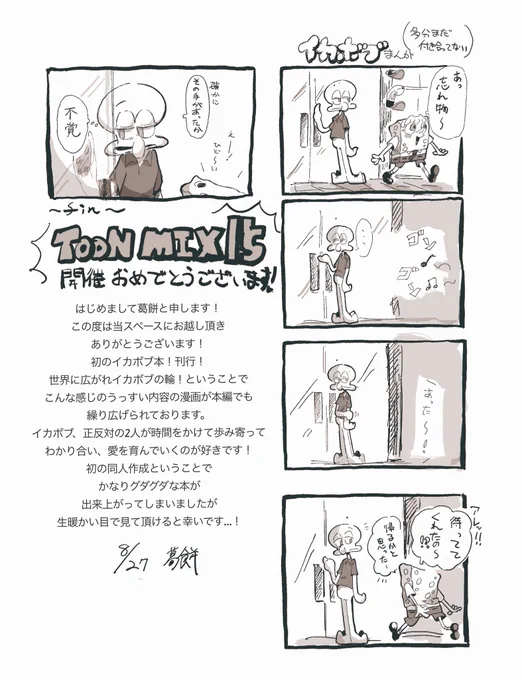 イカボブまんが
(多分まだ
付き合ってない)
あっ
忘れ物〜
…
ゴソ
ゴソ
あった〜!
アレ!!
待ってて
くれたの〜!?
帰るかと
思った〜…
確かに
その手があったか
不覚
えー!
ひど〜い
〜fin〜
TOON MIX 15
開催 おめでとうございます!
はじめまして葛餅と申します！
この度は当スペースにお越し頂き
ありがとうございます！
初のイカボブ本！刊行！
世界に広がれイカボブの輪！ということで
こんな感じのうっすい内容の漫画が本編でも
繰り広げられております。
イカボブ、正反対の2人が時間をかけて歩み寄って
わかり合い、愛を育んでいくのが好きです！
初の同人作成ということで
かなりグダグダな本が
出来上がってしまいましたが
生暖かい目で見て頂けると幸いです...！
8/27 葛餅